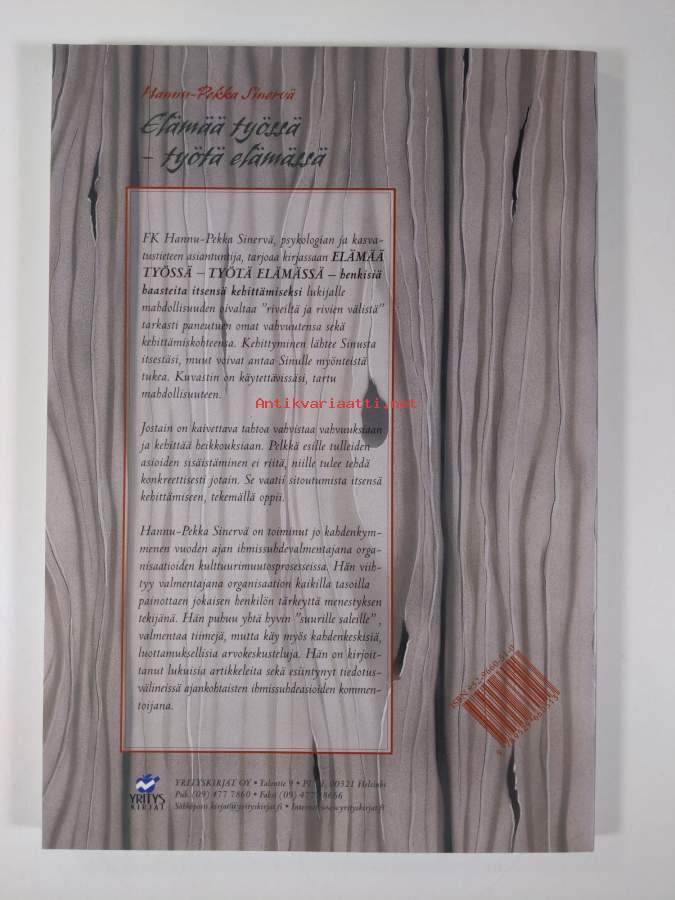 Hannu-Pekka Sinervä
Elämää työssä
– työtä elämässä
FK Hannu-Pekka Sinervä, psykologian ja kasva-
tustieteen asiantuntija, tarjoaa kirjassaan ELÄMÄÄ
TYÖSSÄ – TYÖTÄ ELÄMÄSSÄ – henkisiä
haasteita itsensä kehittämiseksi lukijalle
mahdollisuuden oivaltaa "riveiltä ja rivien välistä"
tarkasti paneutuen omat vahvuutensa sekä
kehittämiskohteensa. Kehittyminen lähtee Sinusta
itsestäsi, muut voivat antaa Sinulle myönteistä
tukea. Kuvastin on käytettävissäsi, tartu
mahdollisuuteen.
Antikvariaatti.net
Jostain on kaivettava tahtoa vahvistaa vahvuuksiaan
ja kehittää heikkouksiaan. Pelkkä esille tulleiden
asioiden sisäistäminen ei riitä, niille tulee tehdä
konkreettisesti jotain. Se vaatii sitoutumista itsensä
kehittämiseen, tekemällä oppii.
Hannu-Pekka Sinervä on toiminut jo kahdenkym-
menen vuoden ajan ihmissuhdevalmentajana orga-
nisaatioiden kulttuurimuutosprosesseissa. Hän viih-
tyy valmentajana organisaation kaikilla tasoilla
painottaen jokaisen henkilön tärkeyttä menestyksen
tekijänä. Hän puhuu yhtä hyvin "suurille saleille",
valmentaa tiimejä, mutta käy myös kahdenkeskisiä,
luottamuksellisia arvokeskusteluja. Hän on kirjoit-
tanut lukuisia artikkeleita sekä esiintynyt tiedotus-
välineissä ajankohtaisten ihmissuhdeasioiden kommen-
toijana.
YRITYS
KIRJAT
YRITYSKIRJAT OY • Talontie 9 • 00321 Helsinki
Puh. (09) 477 7860 • Faksi (09)
Sähköposti kirjat@yrityskirjat.fi • Internet www.yrityskirjat.fi